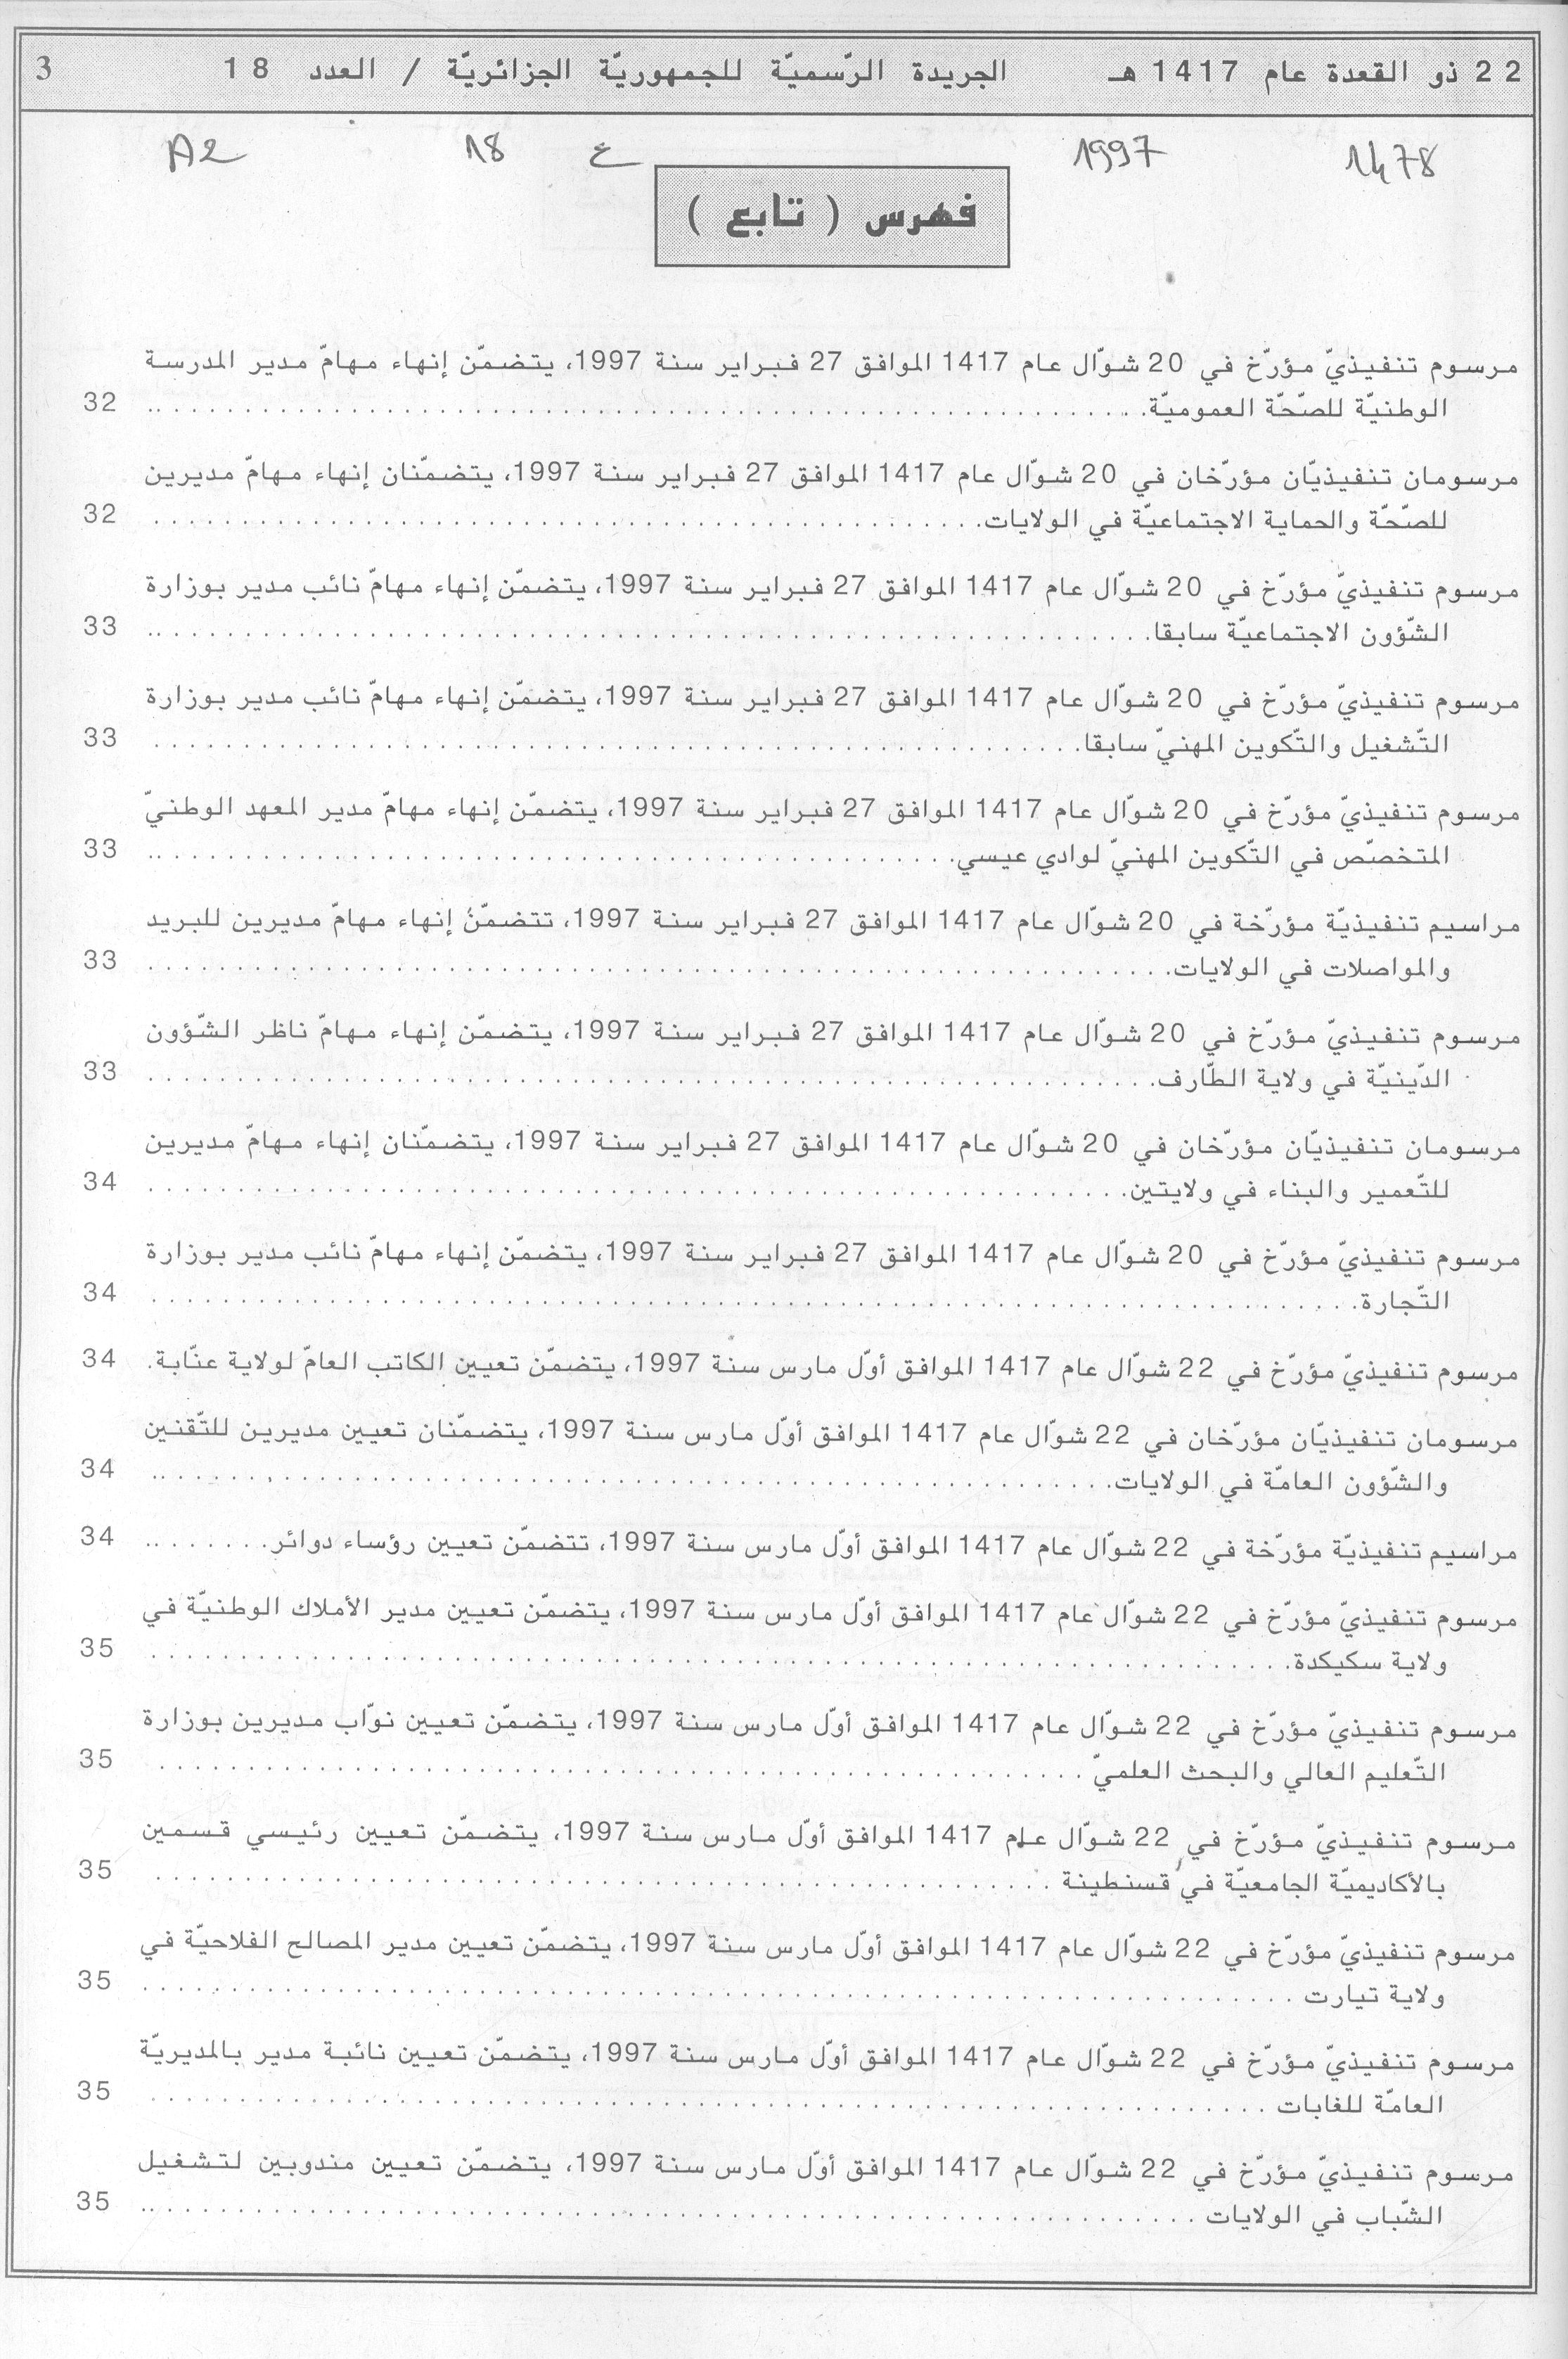 22 ذو القعدة عام 1417 هـ الجريدة الرّسميّة للجمهوريّة الجزائريّة / العدد 18 3
1478 1997 ع 18 A2
فهرس ( تابع )
مرسوم تنفيذيّ مؤرّخ في 20 شوّال عام 1417 الموافق 27 فبراير سنة 1997، يتضمّن إنهاء مهامّ مدير المدرسة
الوطنيّة للصّحّة العموميّة. 32
مرسومان تنفيذيّان مؤرّخان في 20 شوّال عام 1417 الموافق 27 فبراير سنة 1997، يتضمّنان إنهاء مهامّ مديرين
للصّحّة والحماية الاجتماعيّة في الولايات. 32
مرسوم تنفيذيّ مؤرّخ في 20 شوّال عام 1417 الموافق 27 فبراير سنة 1997، يتضمّن إنهاء مهامّ نائب مدير بوزارة
الشّؤون الاجتماعيّة سابقا. 33
مرسوم تنفيذيّ مؤرّخ في 20 شوّال عام 1417 الموافق 27 فبراير سنة 1997، يتضمّن إنهاء مهامّ نائب مدير بوزارة
التّشغيل والتّكوين المهنيّ سابقا. 33
مرسوم تنفيذيّ مؤرّخ في 20 شوّال عام 1417 الموافق 27 فبراير سنة 1997، يتضمّن إنهاء مهامّ مدير المعهد الوطنيّ
المتخصّص في التّكوين المهنيّ لوادي عيسي. 33
مراسيم تنفيذيّة مؤرّخة في 20 شوّال عام 1417 الموافق 27 فبراير سنة 1997، تتضمّن إنهاء مهامّ مديرين للبريد
والمواصلات في الولايات. 33
مرسوم تنفيذيّ مؤرّخ في 20 شوّال عام 1417 الموافق 27 فبراير سنة 1997، يتضمّن إنهاء مهامّ ناظر الشّؤون
الدّينيّة في ولاية الطّارف. 33
مرسومان تنفيذيّان مؤرّخان في 20 شوّال عام 1417 الموافق 27 فبراير سنة 1997، يتضمّنان إنهاء مهامّ مديرين
للتّعمير والبناء في ولايتين. 34
مرسوم تنفيذيّ مؤرّخ في 20 شوّال عام 1417 الموافق 27 فبراير سنة 1997، يتضمّن إنهاء مهامّ نائب مدير بوزارة
التّجارة. 34
مرسوم تنفيذيّ مؤرّخ في 22 شوّال عام 1417 الموافق أوّل مارس سنة 1997، يتضمّن تعيين الكاتب العامّ لولاية عنّابة. 34
مرسومان تنفيذيّان مؤرّخان في 22 شوّال عام 1417 الموافق أوّل مارس سنة 1997، يتضمّنان تعيين مديرين للتّقنين
والشّؤون العامّة في الولايات. 34
مراسيم تنفيذيّة مؤرّخة في 22 شوّال عام 1417 الموافق أوّل مارس سنة 1997، تتضمّن تعيين رؤساء دوائر. 34
مرسوم تنفيذيّ مؤرّخ في 22 شوّال عام 1417 الموافق أوّل مارس سنة 1997، يتضمّن تعيين مدير الأملاك الوطنيّة في
ولاية سكيكدة. 35
مرسوم تنفيذيّ مؤرّخ في 22 شوّال عام 1417 الموافق أوّل مارس سنة 1997، يتضمّن تعيين نوّاب مديرين بوزارة
التّعليم العالي والبحث العلميّ 35
مرسوم تنفيذيّ مؤرّخ في 22 شوّال عام 1417 الموافق أوّل مارس سنة 1997، يتضمّن تعيين رئيسي قسمين
بالأكاديميّة الجامعيّة في قسنطينة 35
مرسوم تنفيذيّ مؤرّخ في 22 شوّال عام 1417 الموافق أوّل مارس سنة 1997، يتضمّن تعيين مدير المصالح الفلاحيّة في
ولاية تيارت 35
مرسوم تنفيذيّ مؤرّخ في 22 شوّال عام 1417 الموافق أوّل مارس سنة 1997، يتضمّن تعيين نائبة مدير بالمديريّة
العامّة للغابات 35
مرسوم تنفيذيّ مؤرّخ في 22 شوّال عام 1417 الموافق أوّل مارس سنة 1997، يتضمّن تعيين مندوبين لتشغيل
الشّباب في الولايات 35